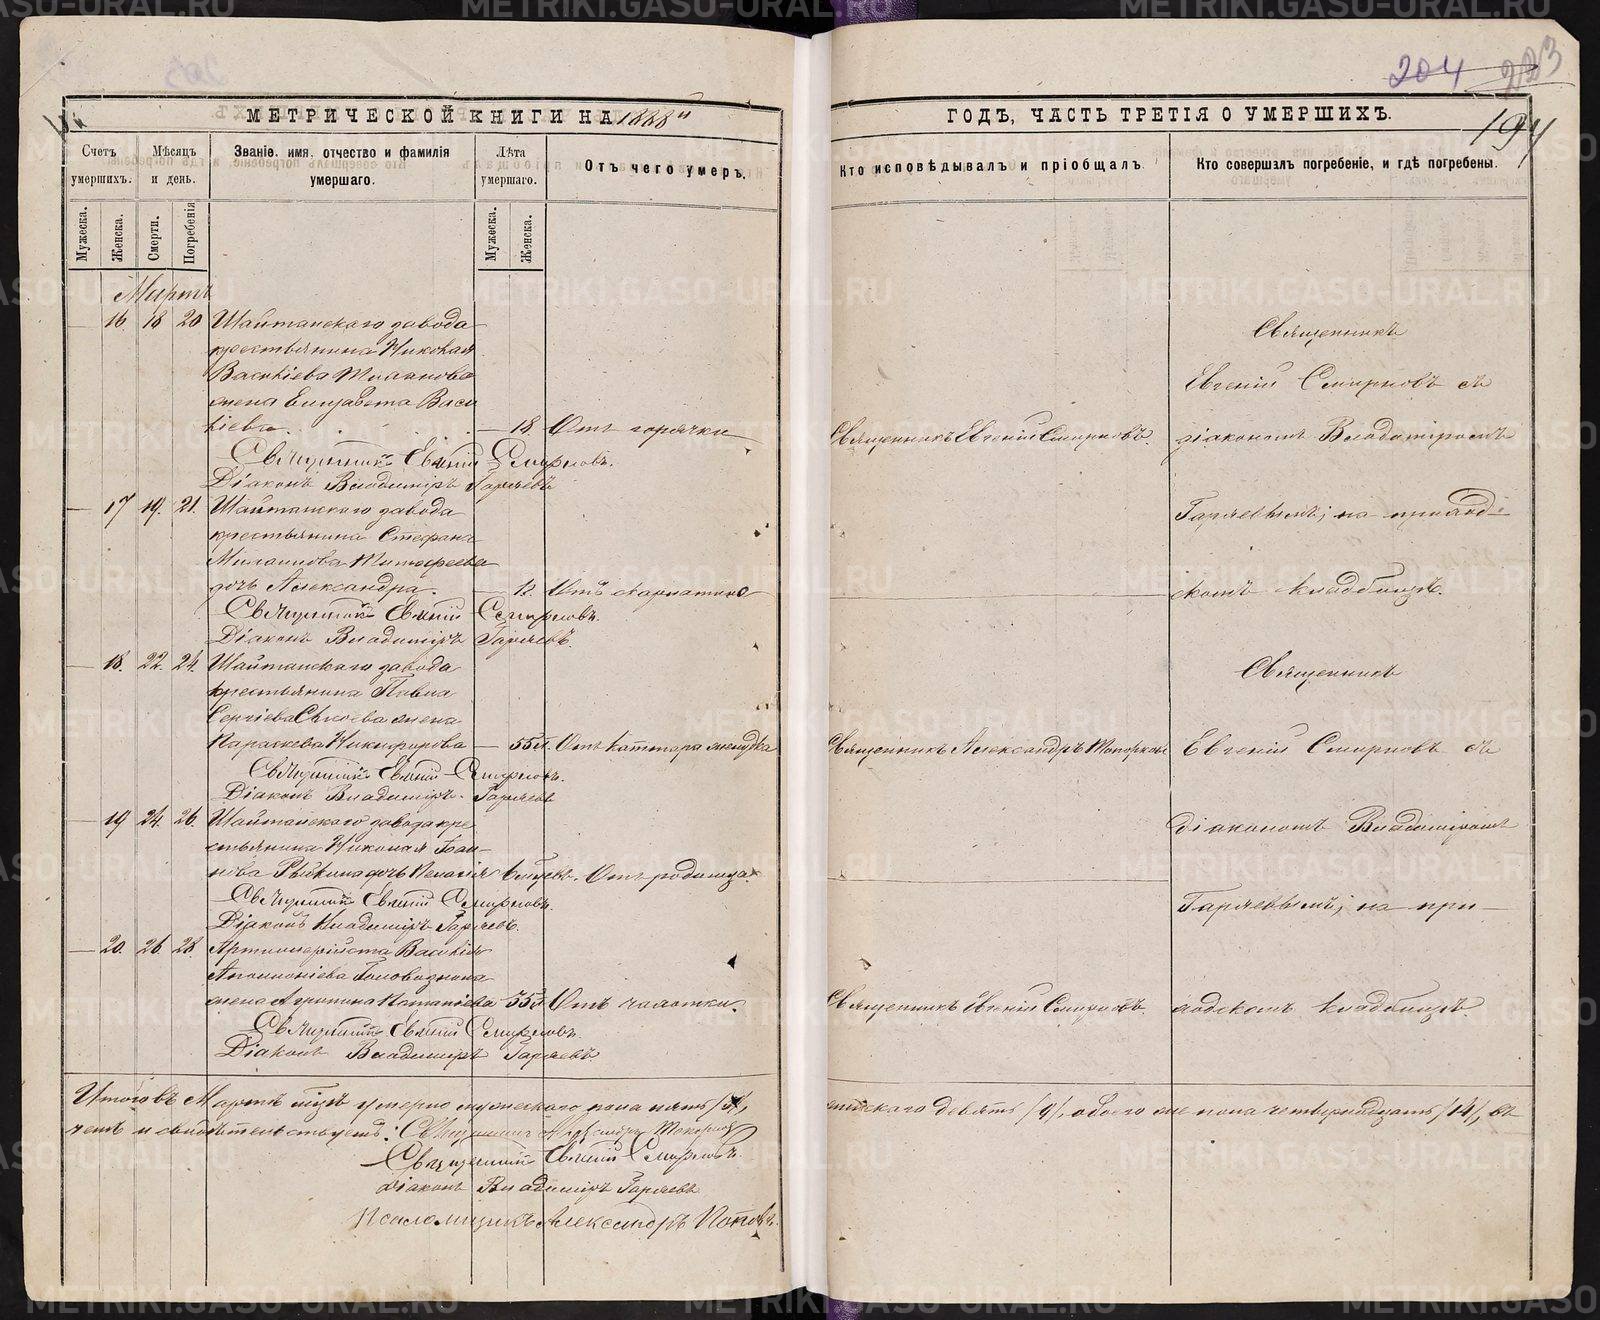 204 223
194
МЕТРИЧЕСКОЙ КНИГИ НА 1888й
ГОДЪ, ЧАСТЬ ТРЕТІЯ О УМЕРШИХЪ.
Счетъ умершихъ.
Мѣсяцъ и день.
Званіе, имя, отчество и фамилія умершаго.
Лѣта умершаго.
Отъ чего умеръ.
Кто исповѣдывалъ и пріобщалъ.
Кто совершалъ погребеніе, и гдѣ погребены.
Мужеска.
Женска.
Смерти.
Погребенія
Мужеска.
Женска.
Мартъ
— 16. 18 20 Шайтанскаго завода
крестьянина Николая
Василіева
жена Елизавета Васи
ліева. — 18. Отъ горячки
Священникъ Евгеній Смирновъ.
Діаконъ Владиміръ Гаряевъ
— 17 19. 21. Шайтанскаго завода
крестьянина Стефана
Тимофеева
дочь Александра. — 12.
Священникъ Евгеній Смирновъ.
Діаконъ Владиміръ Гаряевъ.
— 18. 22. 24. Шайтанскаго завода
крестьянина Павла
Сергіева жена
Параскева Никифорова — 55л. Отъ каттара желудка
Священникъ Евгеній Смирновъ.
Діаконъ Владиміръ Гаряевъ
— 19 24. 26. Шайтанскаго завода кре
стьянина Николая
дочь Пелагія Отъ родимца.
Священникъ Евгеній Смирновъ.
Діаконъ Владиміръ Гаряевъ.
— 20. 26. 28. Артиллерійста Василія
Аполлоніева
жена Агрипина — 55л. Отъ чахотки.
Священникъ Евгеній Смирновъ.
Діаконъ Владиміръ Гаряевъ.
Итого въ Мартѣ мцѣ умерло мужескаго пола пять /5/,
чемъ и свидѣтельствуемъ: Священникъ Александръ Топорковъ
Священникъ Евгеній Смирновъ.
Діаконъ Владиміръ Гаряевъ
Псаломщикъ Александръ Поповъ.
Священникъ Евгеній Смирновъ.
Священникъ
Евгеній Смирновъ съ
діакономъ Владиміромъ
Гаряевымъ; на приход-
скомъ кладбищѣ.
Священникъ Александръ Топорковъ
Священникъ
Евгеній Смирновъ съ
діакономъ Владиміромъ
Гаряевымъ; на при-
ходскомъ кладбищѣ.
Священникъ Евгеній Смирновъ.
женскаго девять /9/, обоего же пола четырнадцать /14/, въ
METRIKI.GASO-URAL.RU